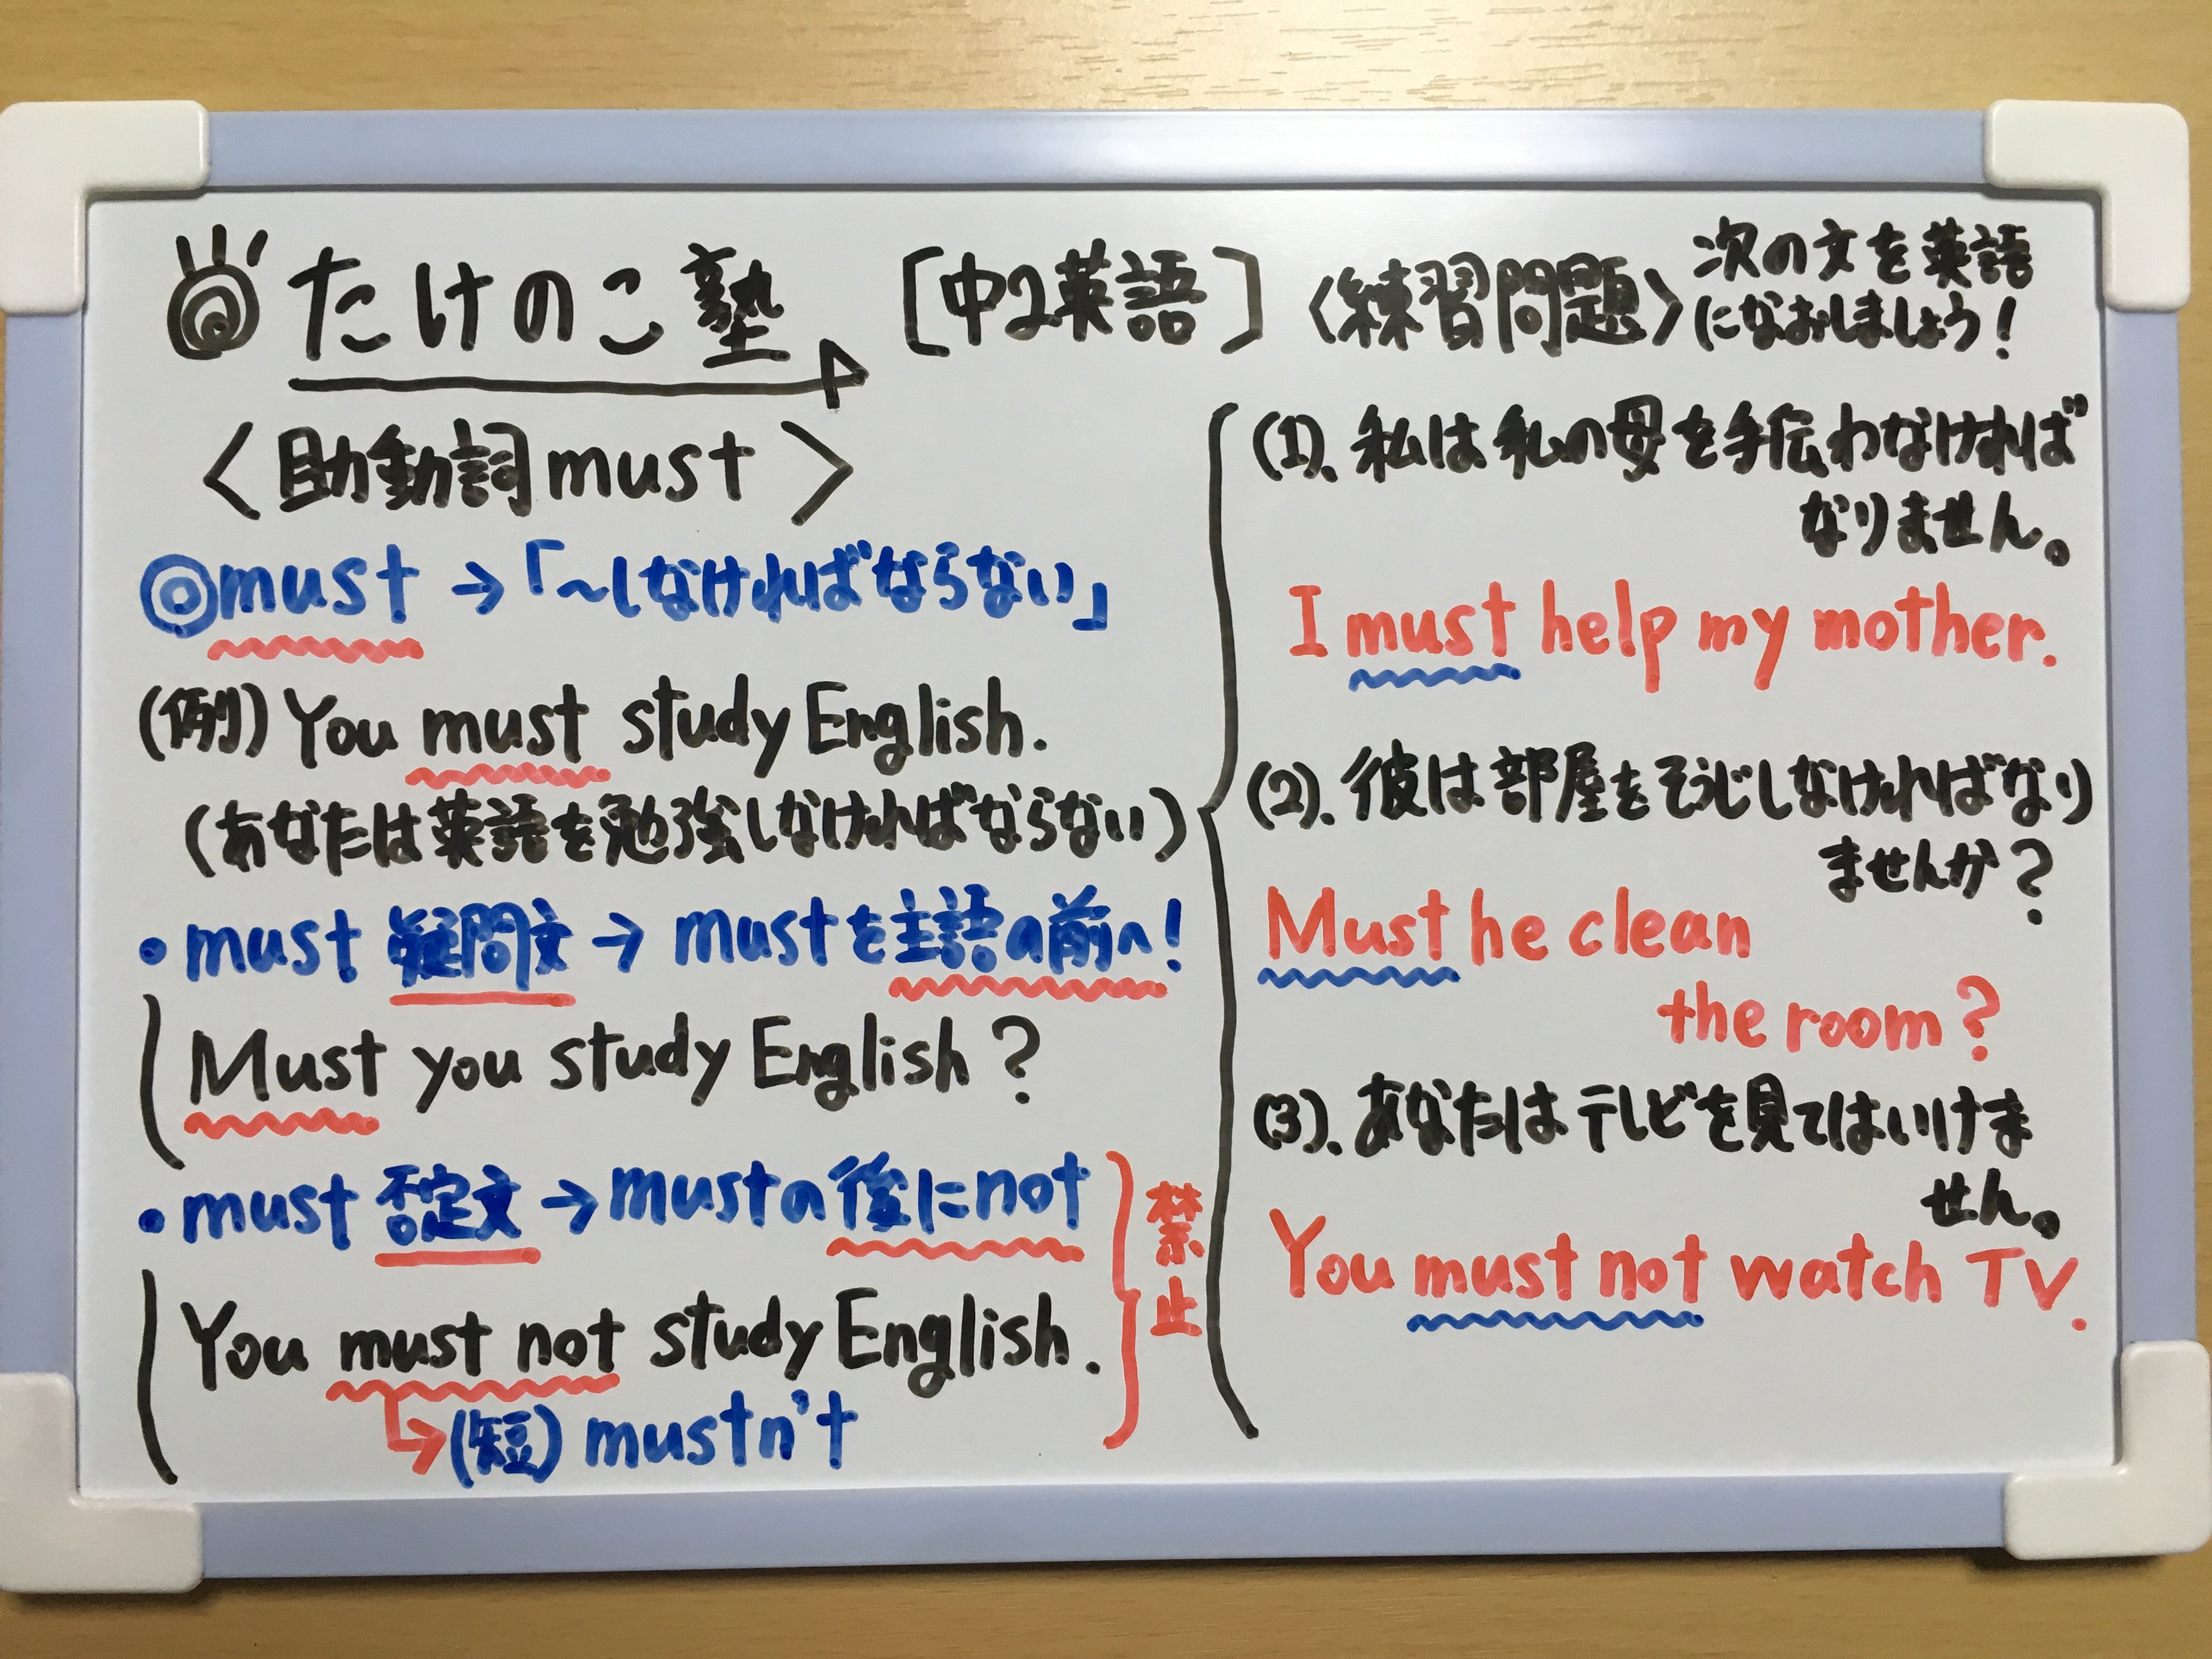 たけのこ塾 [中2英語]
<助動詞must>
◎must→「~しなければならない」
(例)You must study English.
(あなたは英語を勉強しなければならない)
・must 疑問文→mustを主語の前へ!
Must you study English?
・must 否定文→mustの後にnot
You must not study English.
→(短)mustn't
禁止
<練習問題>次の文を英語
になおしましょう!
(1).私は私の母を手伝わなければ
なりません。
I must help my mother.
(2).彼は部屋をそうじしなければなり
ませんか?
Must he clean
the room?
(3).あなたはテレビを見てはいけま
せん。
You must not watch TV.